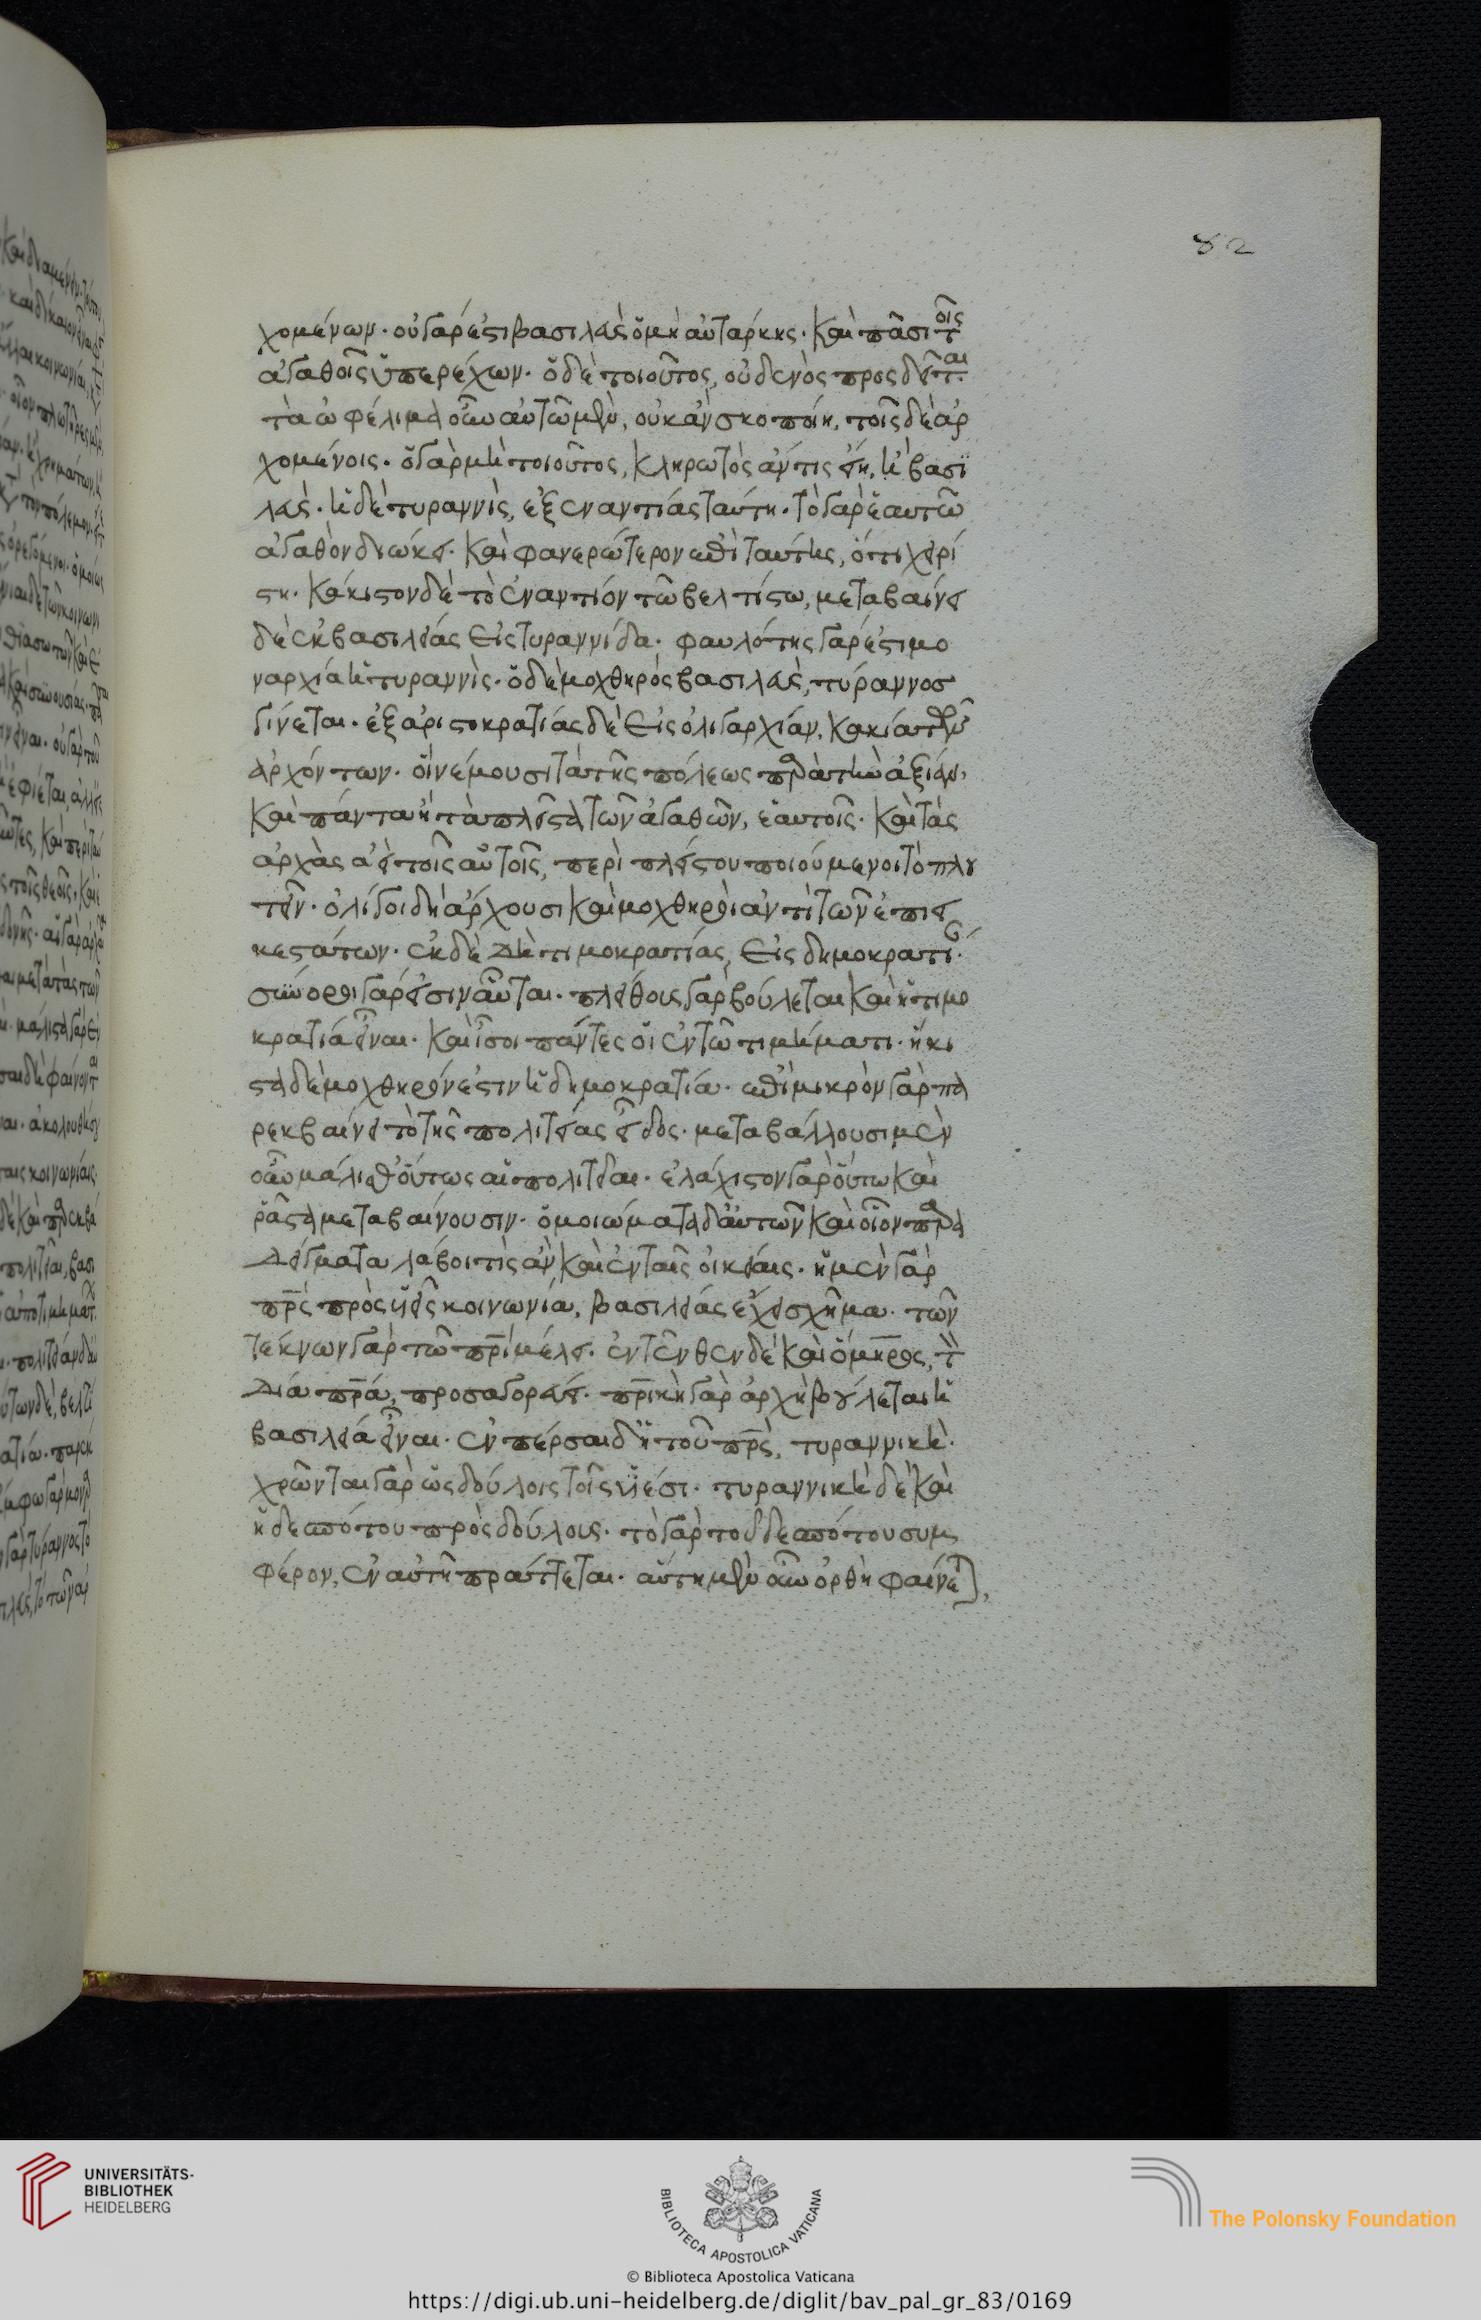 82
χομένων· οὐ γάρ ἐστι βασιλεὺς ὁ μὴ αὐτάρκης· καὶ πᾶσι τοῖς
ἀγαθοῖς ὑπερέχων· ὁ δὲ τοιοῦτος, οὐδενὸς προσδεῖται·
τὰ ὠφέλιμα οὖν αὐτῶ μὲν, οὐκ ἂν σκοποίη, τοῖς δὲ ἀρ
χομένοις· ὁ γὰρ μὴ τοιοῦτος, κληρωτὸς ἄν τις εἴη, ἢ βασι
λεὺς· ἡ δὲ τυραννὶς, ἐξ ἐναντίας ταύτη· τὸ γὰρ ἑαυτῶ
ἀγαθὸν διώκει· καὶ φανερώτερον ἐπὶ ταύτης, ὅτι χειρί
στη· κάκιστον δὲ τὸ ἐναντίον τῶ βελτίστω, μεταβαίνει
δὲ ἐκ βασιλείας εἰς τυραννίδα· φαυλότης γάρ ἐστι μο
ναρχία ἡ τυραννὶς· ὁ δὲ μοχθηρὸς βασιλεὺς, τύραννος
γίνεται· ἐξ ἀριστοκρατίας δὲ εἰς ὀλιγαρχίαν, κακία τῶν
ἀρχόντων· οἳ νέμουσι τὰ τῆς πόλεως παρὰ τὴν ἀξίαν,
καὶ πάντα ἢ τὰ πλεῖστα τῶν ἀγαθῶν, ἑαυτοῖς· καὶ τὰς
ἀρχὰς ἀεὶ τοῖς αὐτοῖς, περὶ πλείστου ποιούμενοι τὸ πλου
τεῖν· ὀλίγοι δὴ ἄρχουσι καὶ μοχθηροὶ ἀντὶ τῶν ἐπιει
κεστάτων· ἐκ δὲ δὴ τιμοκρατίας, εἰς δημοκρατί·
σύνοροι γάρ εἰσιν αὗται· πλήθους γὰρ βούλεται καὶ ἡ τιμο
κρατία εἶναι· καὶ ἴσοι πάντες οἱ ἐν τῶ τιμήματι· ἥκι
στα δὲ μοχθηρόν ἐστιν ἡ δημοκρατία· ἐπὶ μικρὸν γὰρ πα
ρεκβαίνει τὸ τῆς πολιτείας εἶδος· μεταβάλλουσι μὲν
οὖν μάλισθ' οὕτως αἱ πολιτεῖαι· ἐλάχιστον γὰρ οὕτω καὶ
ῥᾶστα μεταβαίνουσιν· ὁμοιώματα δ' αὐτῶν καὶ οἷον παρα
δείγματα λάβοι τὶς ἂν καὶ ἐν ταῖς οἰκείαις· ἡ μὲν γὰρ
πρς πρὸς υἱεῖς κοινωνία, βασιλείας ἔχει σχῆμα· τῶν
τέκνων γὰρ τῶ πρι μέλει· ἐντεῦθεν δὲ καὶ ὅμηρος, τὸν
δία πρα, προσαγορεύει· πρικὴ γὰρ ἀρχὴ βούλεται ἡ
βασιλεία εἶναι· ἐν πέρσαι δ' ἡ τοῦ πρς, τυραννικὴ·
χρῶνται γὰρ ὡς δούλοις τοῖς υἱέσι· τυραννικὴ δὲ καὶ
ἡ δεσπότου πρὸς δούλους· τὸ γὰρ τοῦ δεσπότου συμ
φέρον, ἐν αὐτῆ πράττεται· αὕτη μὲν οὖν ὀρθὴ φαίνεται,
UNIVERSITÄTS-
BIBLIOTHEK
HEIDELBERG
BIBLIOTECA APOSTOLICA VATICANA
© Biblioteca Apostolica Vaticana
The Polonsky Foundation
https://digi.ub.uni-heidelberg.de/diglit/bav_pal_gr_83/0169